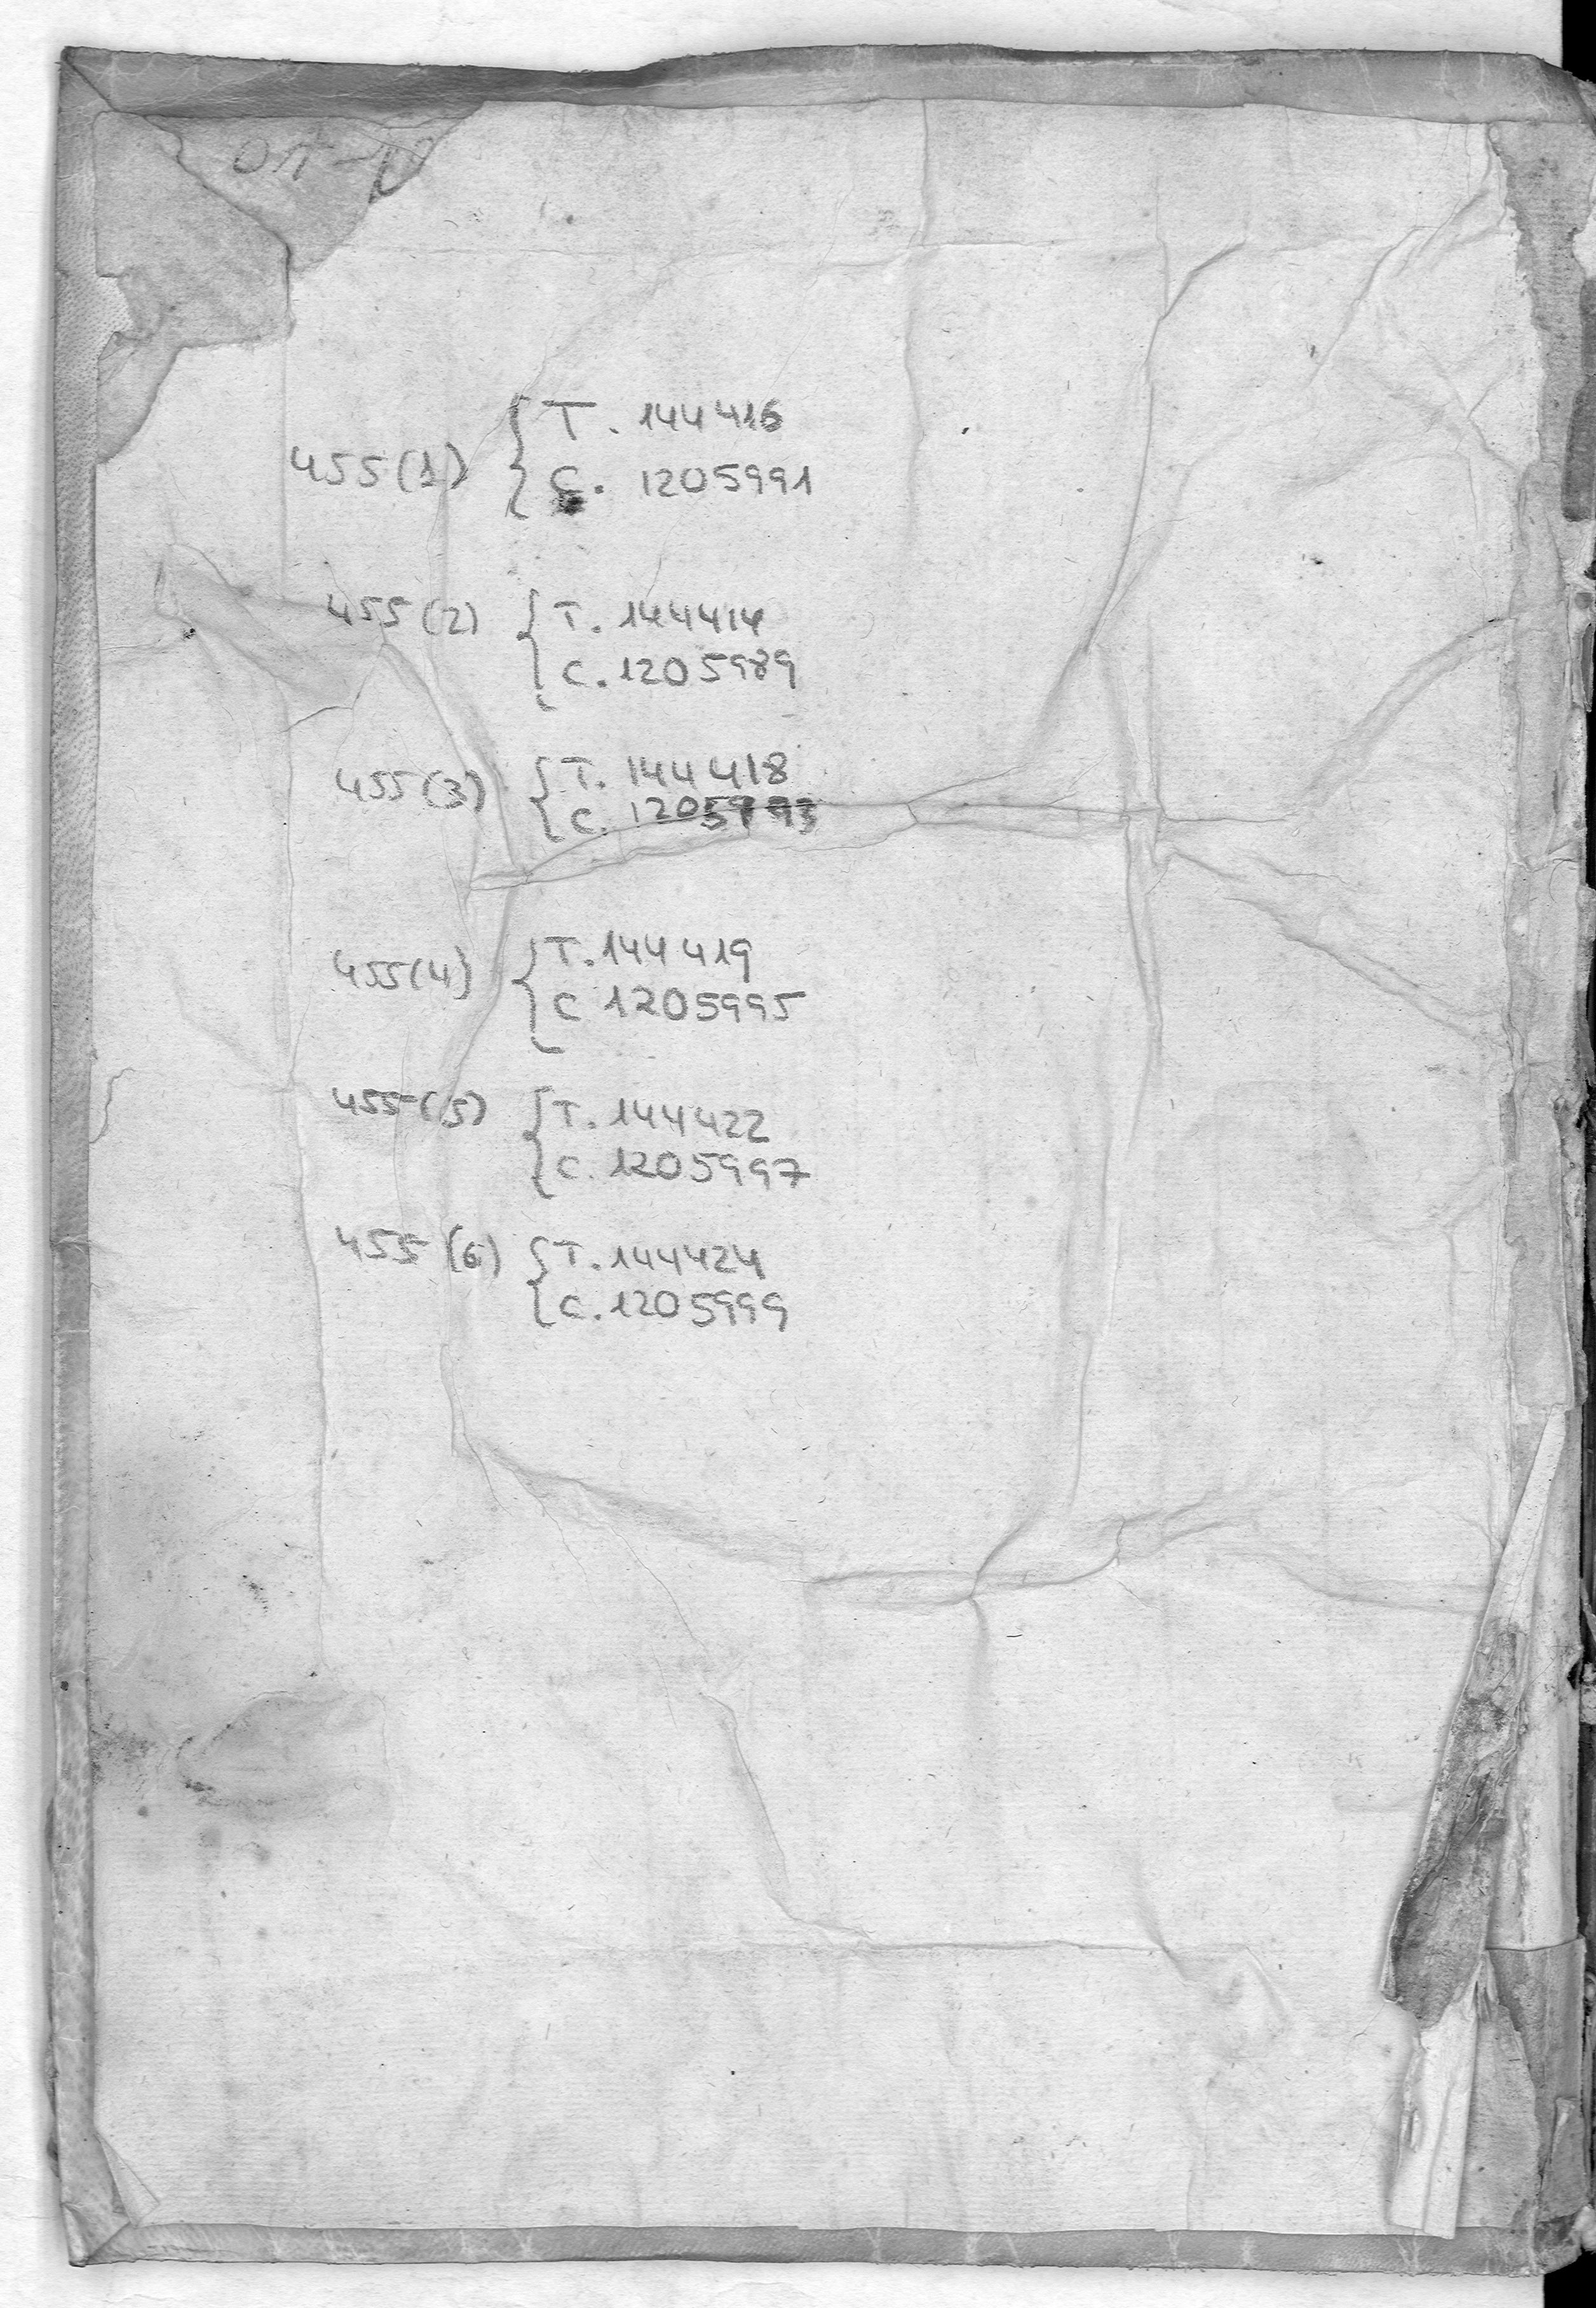 T. 144416
455(1)
C. 1205991
455(2) T. 144414
C. 1205989
455(3) T. 144418
C. 1205993
455(4) T. 144419
C 1205995
455(5) T. 144422
C. 1205997
455(6) T. 144424
C. 1205999